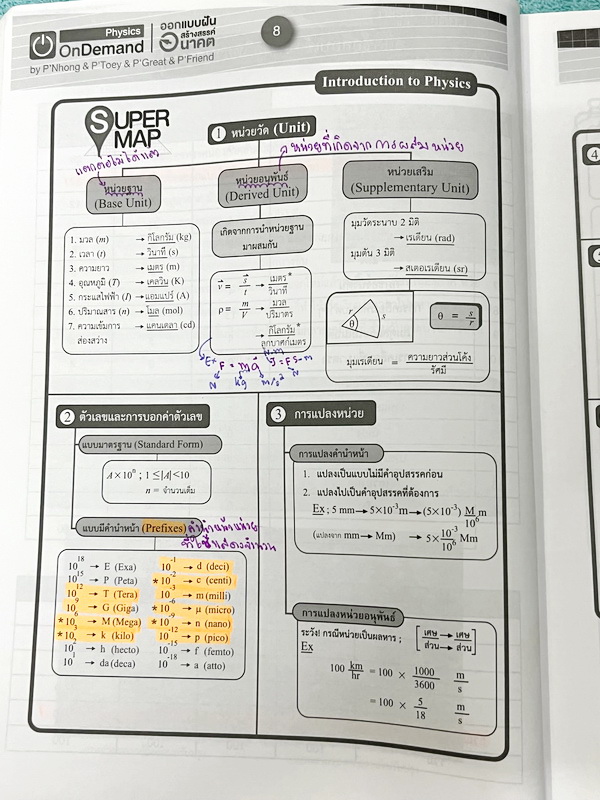 Physics
OnDemand
ออกแบบฝัน
สร้างสรรค์
อนาคต
by P'Nhong & P'Toey & P'Great & P'Friend
8
Introduction to Physics
SUPER
MAP
1 หน่วยวัด (Unit)
แตกต่อไม่ได้แล้ว
หน่วยที่เกิดจาก การผสม หน่วย
หน่วยฐาน
(Base Unit)
หน่วยอนุพันธ์
(Derived Unit)
หน่วยเสริม
(Supplementary Unit)
1. มวล (m) → กิโลกรัม (kg)
2. เวลา (t) → วินาที (s)
3. ความยาว → เมตร (m)
4. อุณหภูมิ (T) → เคลวิน (K)
5. กระแสไฟฟ้า (I) → แอมแปร์ (A)
6. ปริมาณสาร (n) → โมล (mol)
7. ความเข้มการ → แคนเดลา (cd)
ส่องสว่าง
เกิดจากการนำหน่วยฐาน
มาผสมกัน
v = s/t → เมตร*/วินาที
ρ = m/V → มวล/ปริมาตร
→ กิโลกรัม*/ลูกบาศก์เมตร
Ex F = mg
N kg m/s²
N-m
J = FS-m
N
มุมวัดระนาบ 2 มิติ
→ เรเดียน (rad)
มุมตัน 3 มิติ
→ สเตอเรเดียน (sr)
r
θ
s
θ = s/r
มุมเรเดียน = ความยาวส่วนโค้ง/รัศมี
2 ตัวเลขและการบอกค่าตัวเลข
แบบมาตรฐาน (Standard Form)
A×10ⁿ ; 1 ≤|A|<10
n = จำนวนเต็ม
แบบมีคำนำหน้า (Prefixes)
คำนำหน้าหน่วย
10¹⁸ → E (Exa)
10¹⁵ → P (Peta)
10¹² → T (Tera)
10⁹ → G (Giga)
*10⁶ → M (Mega)
*10³ → k (kilo)
10² → h (hecto)
10¹ → da (deca)
10⁻¹ → d (deci)
*10⁻² → c (centi)
10⁻³ → m (milli)
*10⁻⁶ → μ (micro)
*10⁻⁹ → n (nano)
10⁻¹² → p (pico)
10⁻¹⁵ → f (femto)
10⁻¹⁸ → a (atto)
3 การแปลงหน่วย
การแปลงคำนำหน้า
1. แปลงเป็นแบบไม่มีคำอุปสรรคก่อน
2. แปลงไปเป็นคำอุปสรรคที่ต้องการ
Ex ; 5 mm → 5×10⁻³m → (5×10⁻³) M/10⁶ m
(แปลงจาก mm → Mm) → 5× 10⁻³/10⁶ Mm
การแปลงหน่วยอนุพันธ์
ระวัง! กรณีหน่วยเป็นผลหาร ; [เศษ → เศษ
ส่วน → ส่วน]
Ex
100 km/hr = 100 × 1000/3600 m/s
= 100 × 5/18 m/s
4